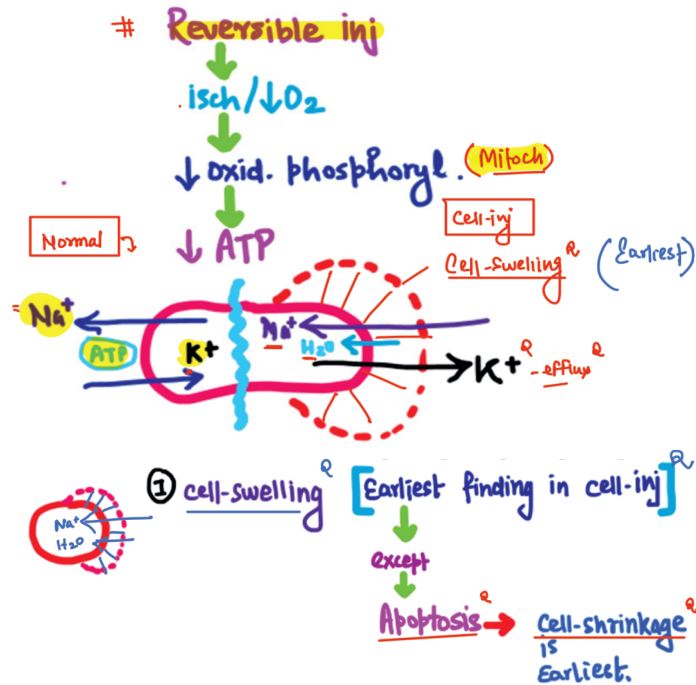 # Reversible inj
isch/↓O₂
↓ oxid. phosphoryl. (Mitoch)
Normal
↓ ATP
cell-inj
Cell-swelling Q (Earliest)
Na⁺
ATP
K⁺
Na⁺
H₂O
K⁺ Q - efflux Q
① cell-swelling Q [Earliest finding in cell-inj] Q
Na⁺
H₂O
except
Apoptosis Q → cell-shrinkage Q
is
Earliest.